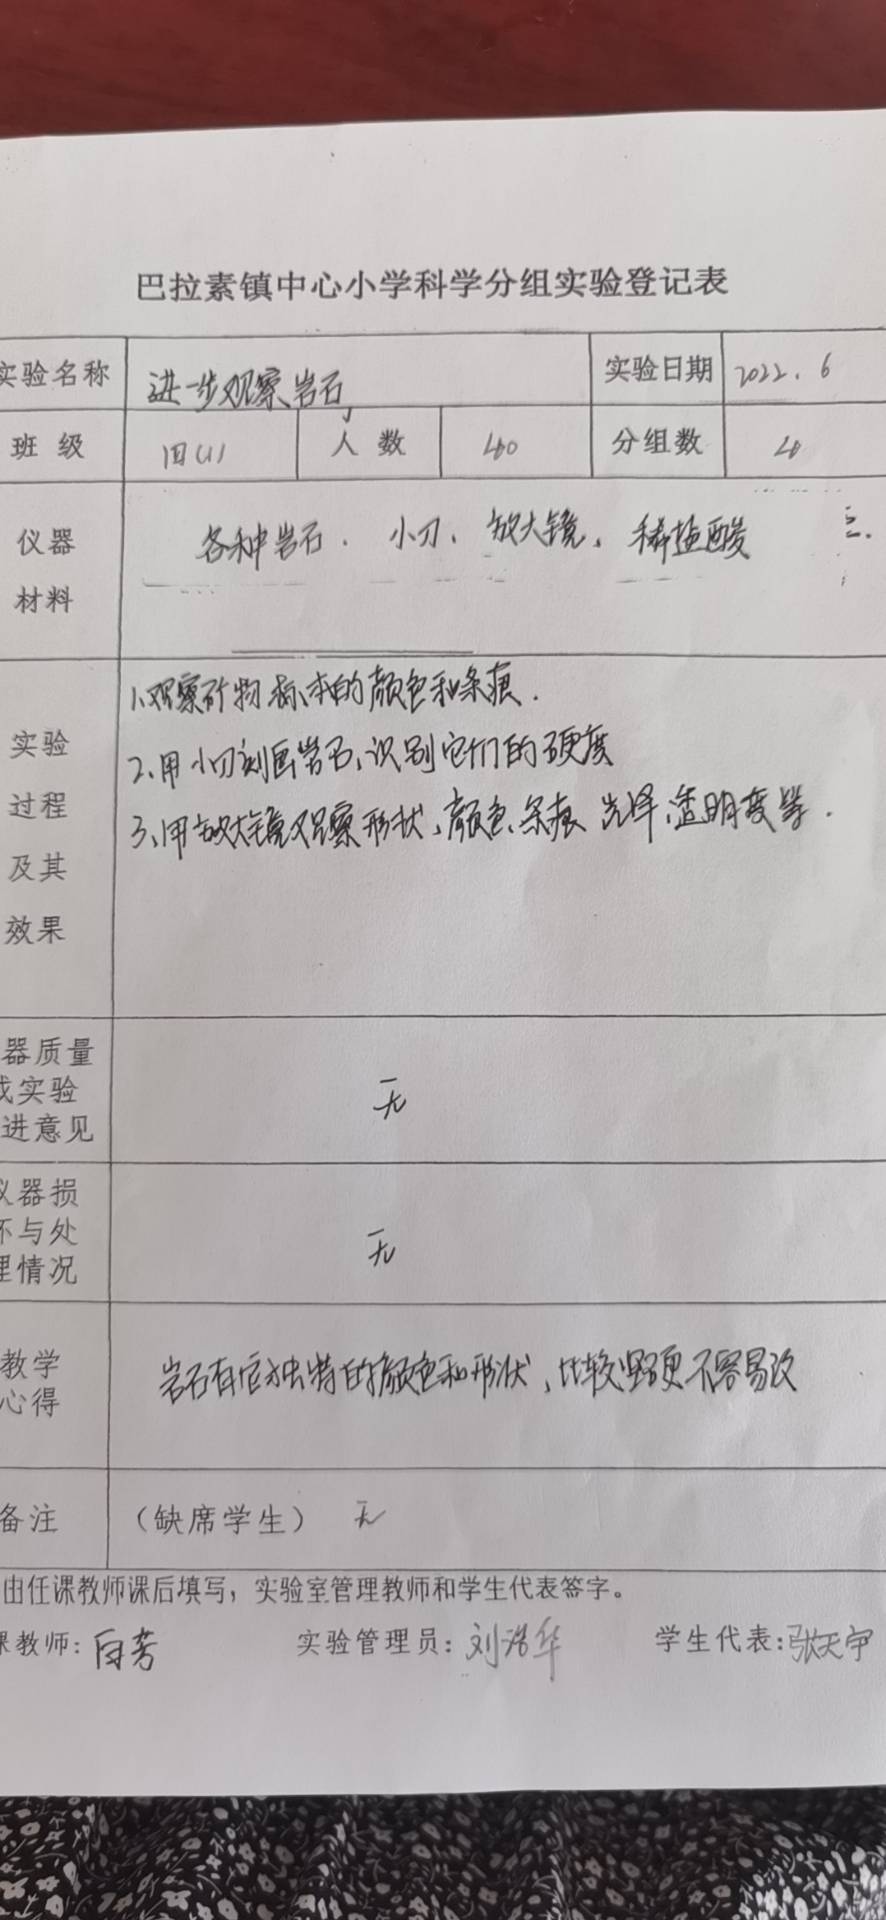 巴拉素镇中心小学科学分组实验登记表
实验名称 进一步观察岩石 实验日期 2022.6
班级 四(1) 人数 40 分组数 4
仪器 各种岩石、小刀、放大镜、稀盐酸
材料
1、观察矿物标本的颜色和条痕.
实验
2、用小刀刻画岩石,识别它们的硬度
过程
3、用放大镜观察形状、颜色、条痕 光泽、透明度等.
及其
效果
器质量
或实验 无
进意见
仪器损
坏与处 无
理情况
教学 岩石有它独特的颜色和形状,比较坚硬不容易改
心得
备注 (缺席学生) 无
由任课教师课后填写,实验室管理教师和学生代表签字。
课教师: 白芳 实验管理员: 刘浩华 学生代表: 张天宇